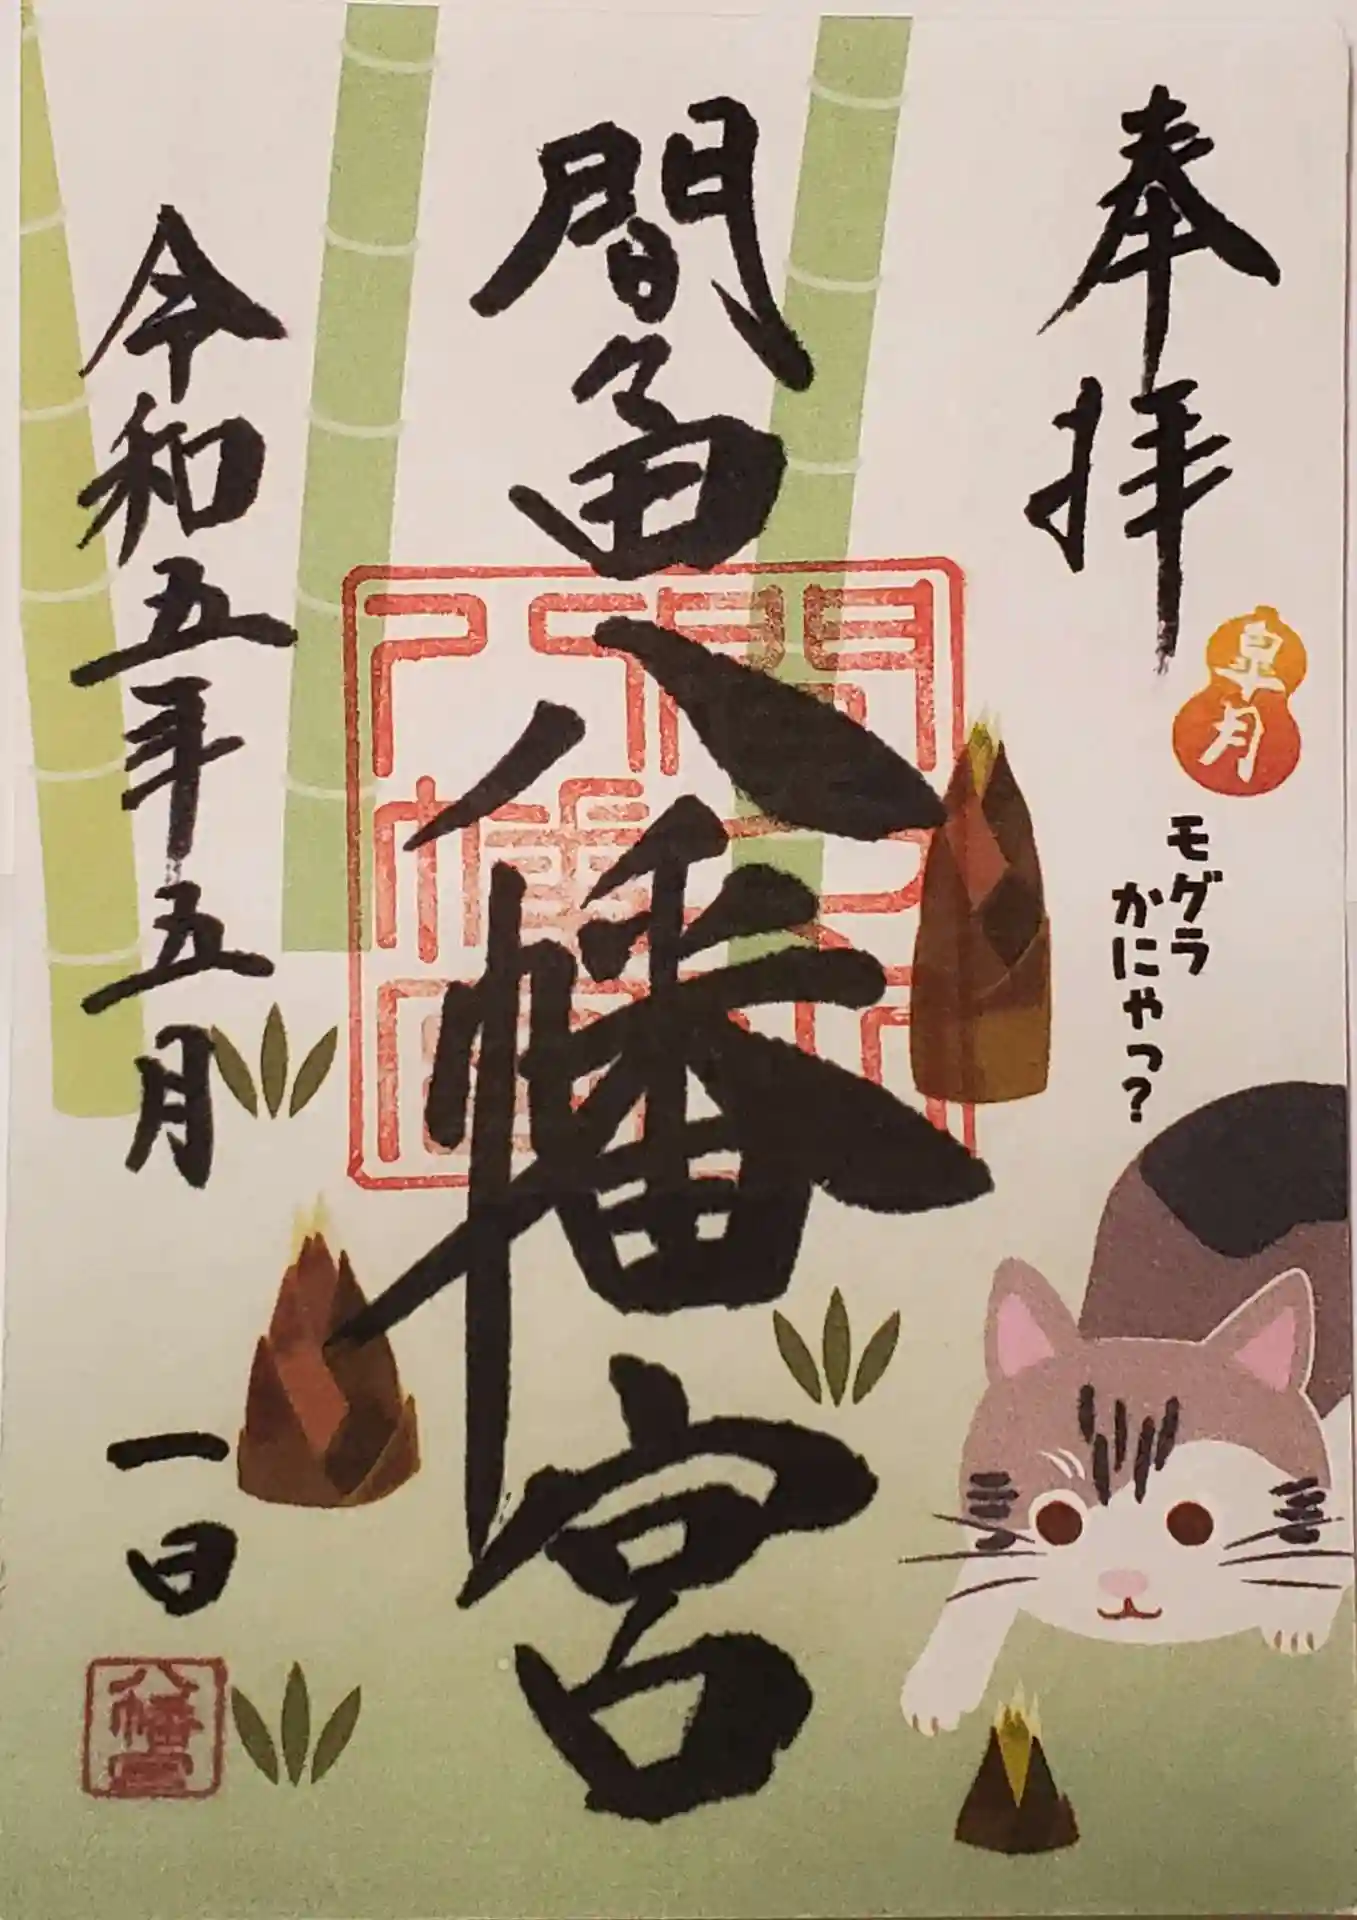 奉拝
皐月
モグラ
かにゃっ?
間々田八幡宮
令和五年五月
一日
八幡宮